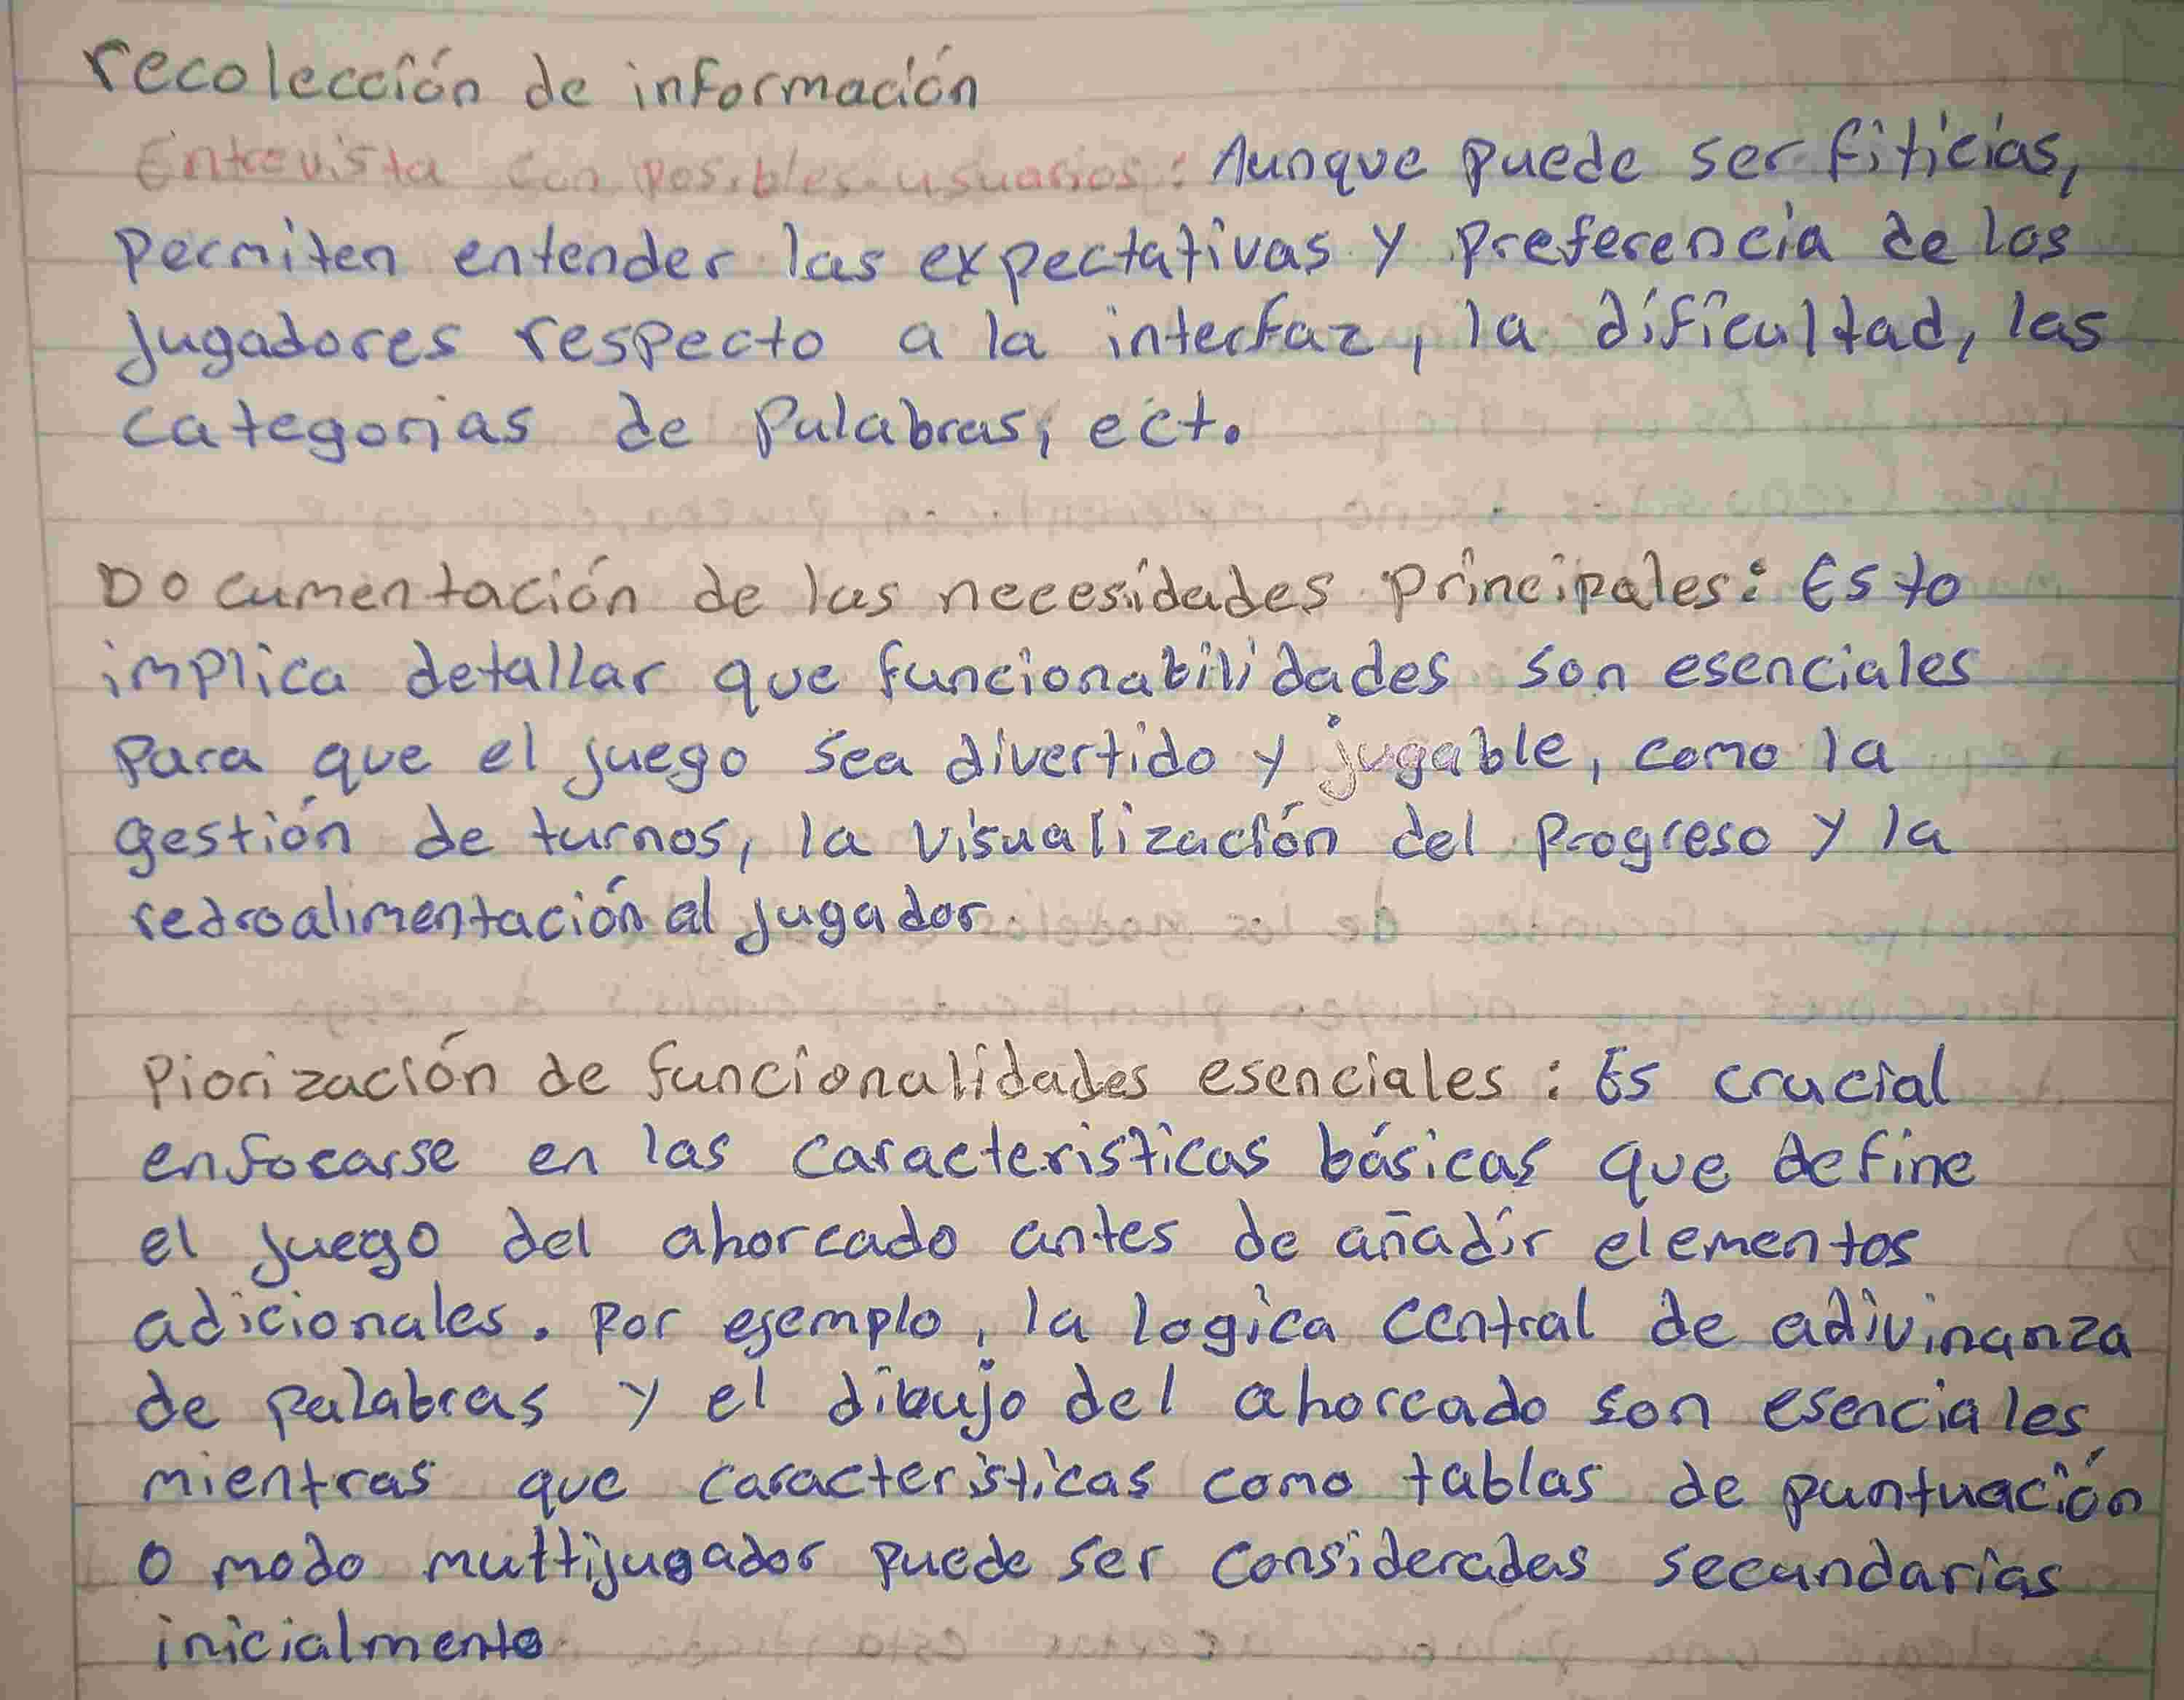 recolección de información
Entrevista con posibles usuarios: Aunque puede ser fiticias,
permiten entender las expectativas y preferencia de los
jugadores respecto a la interfaz, la dificultad, las
categorias de palabras, ect.
Documentación de las necesidades principales: Esto
implica detallar que funcionabilidades son esenciales
para que el juego sea divertido y jugable, como la
gestión de turnos, la visualización del progreso y la
redroalimentación al jugador
Piorización de funcionalidades esenciales: Es crucial
enfocarse en las caracteristicas básicas que define
el juego del ahorcado antes de añadir elementos
adicionales. Por ejemplo, la logica central de adivinanza
de palabras y el dibujo del ahorcado son esenciales,
mientras que caracteristicas como tablas de puntuación
o modo multijugador puede ser consideradas secundarias
inicialmente